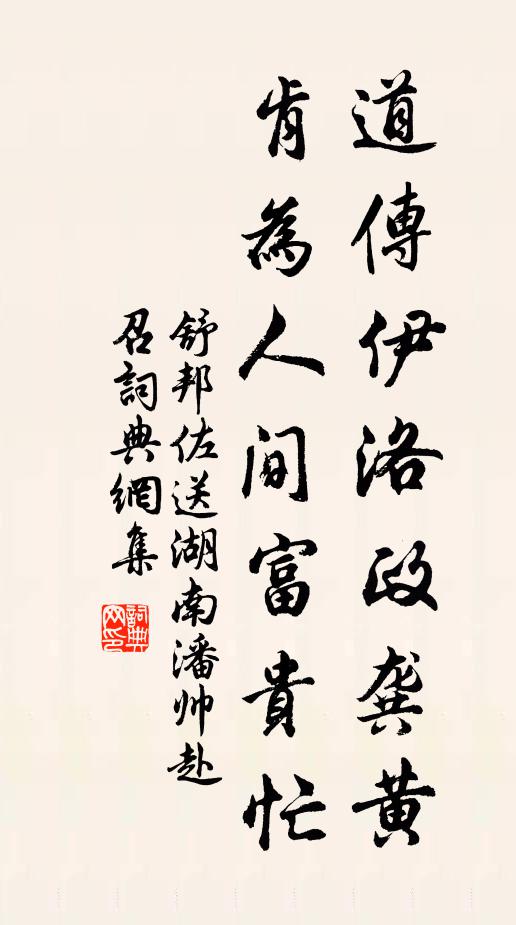 道傳伊洛政龔黃
肯為人間富貴忙
舒邦佐送湖南潘帅赴
召詞典網集
詞典網印